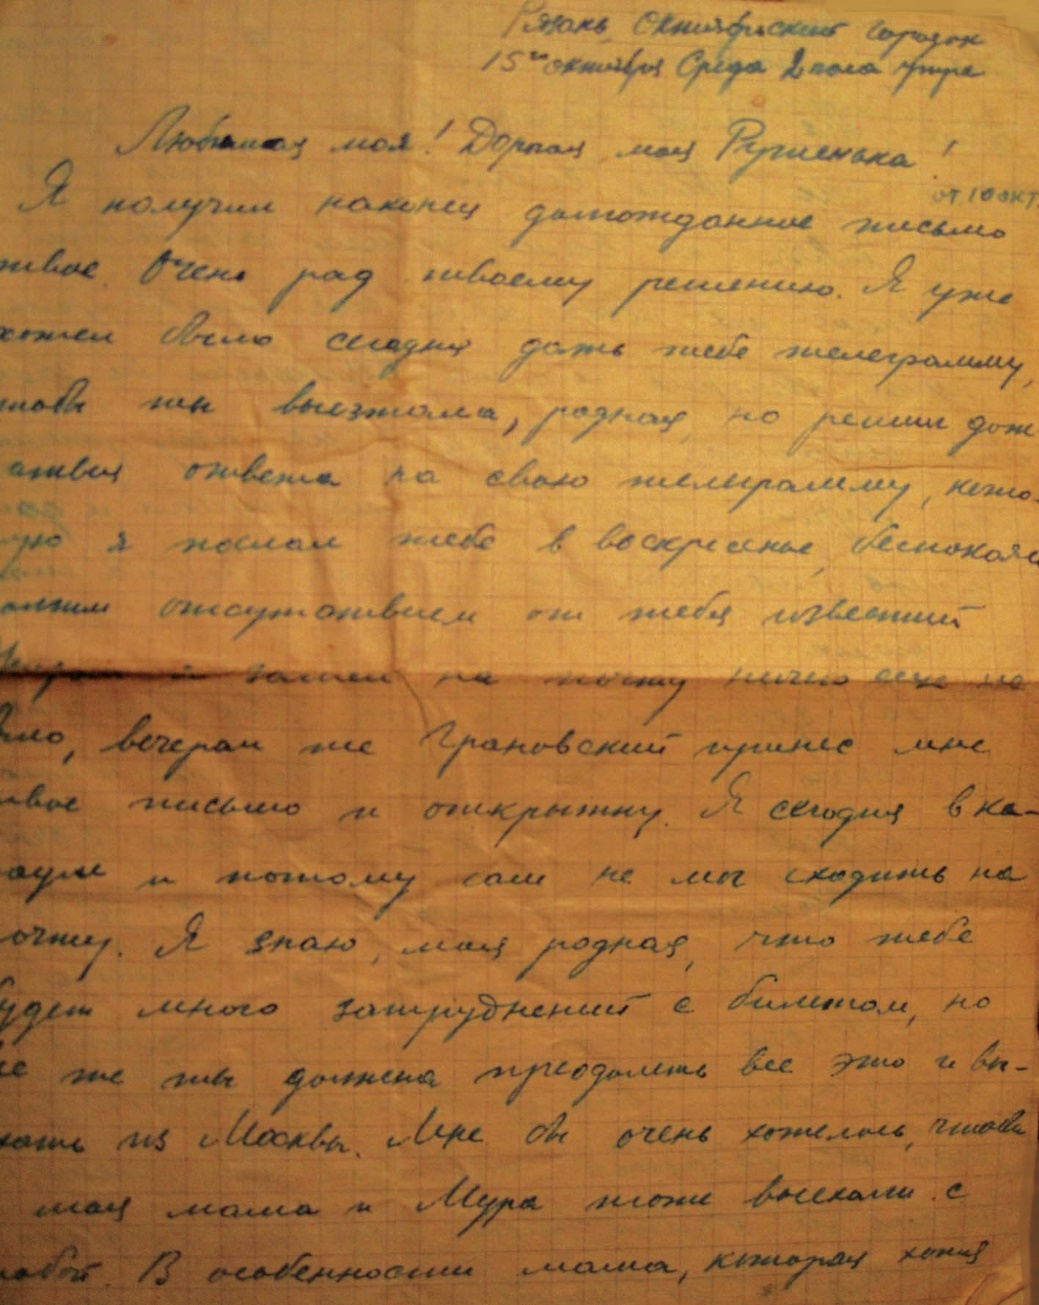 Рязань, Октябрьский городок
15го октября Среда 2 часа утра
Любимая моя! Дорогая моя Рузиенька!
от 10 окт.
Я получил наконец долгожданное письмо
твое. Очень рад твоему решению. Я уже
хотел было сегодня дать тебе телеграмму,
чтобы ты выезжала, родная, но решил дож-
аться ответа на свою телеграмму, кото-
рую я послал тебе в воскресенье, беспокоясь
долгим отсутствием от тебя известий
Утром я зашел на почту ничего еще не
было, вечером же Грановский принес мне
твое письмо и открытку. Я сегодня в ка-
рауле и потому сам не мог сходить на
почту. Я знаю, моя родная, что тебе
будет много затруднений с билетом, но
все же ты должна преодолеть все это и вы-
ехать из Москвы. Мне бы очень хотелось, чтобы
моя мама и Мура тоже выехали с
тобой. В особенности мама, которая хотя